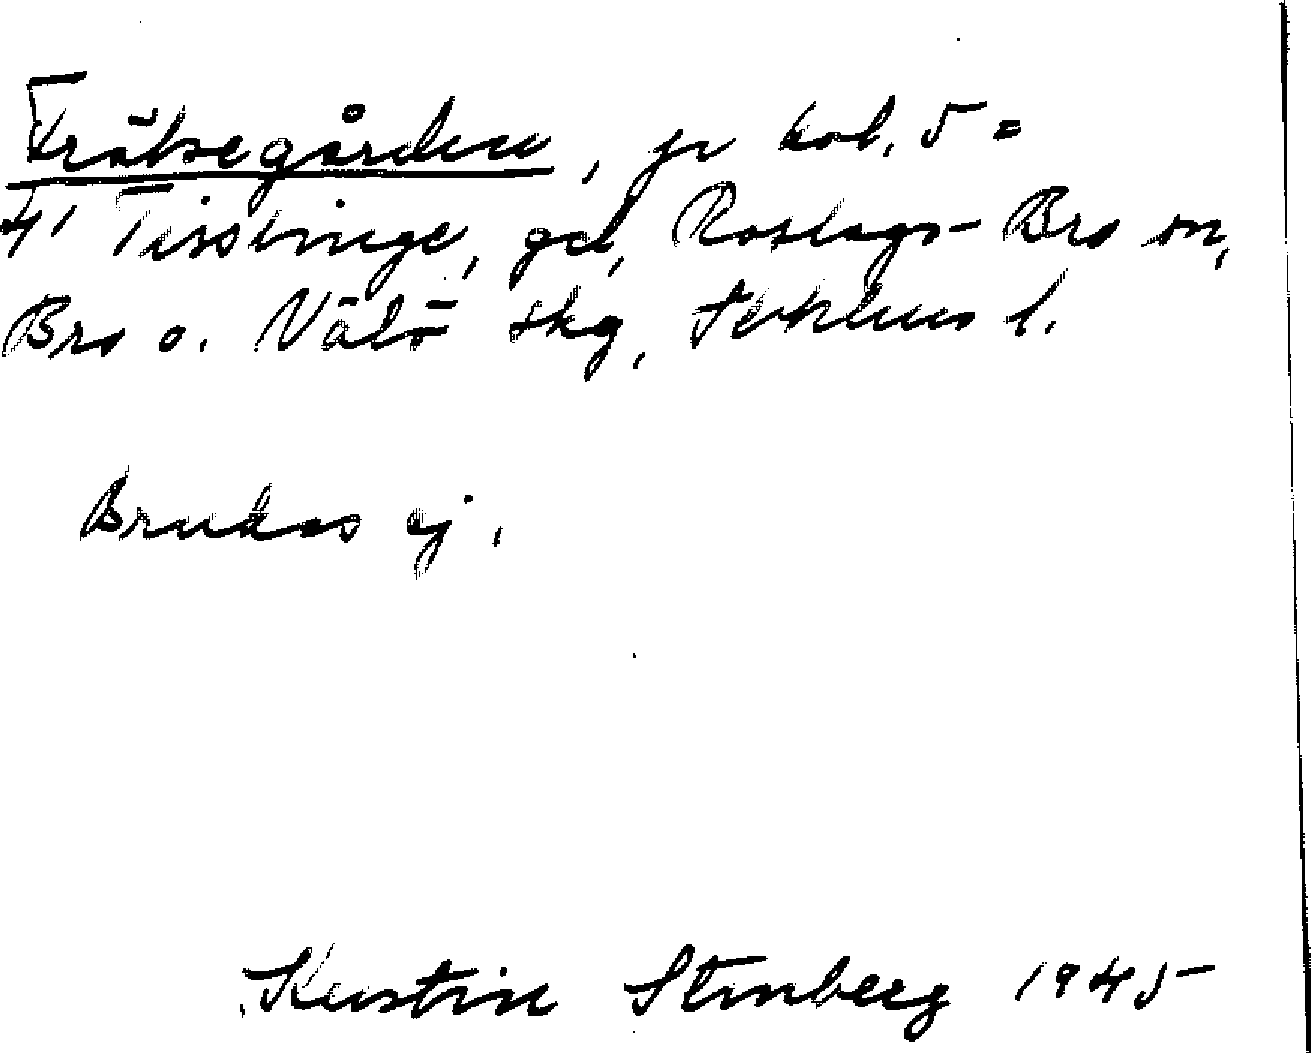 Frälsegården, jr kob. 5 =
4' Tisslinge, gd, Roslags-Bro sn,
Bro o. Vätö skg, Sthlms l.
Brukas ej.
Kerstin Stenberg 1945